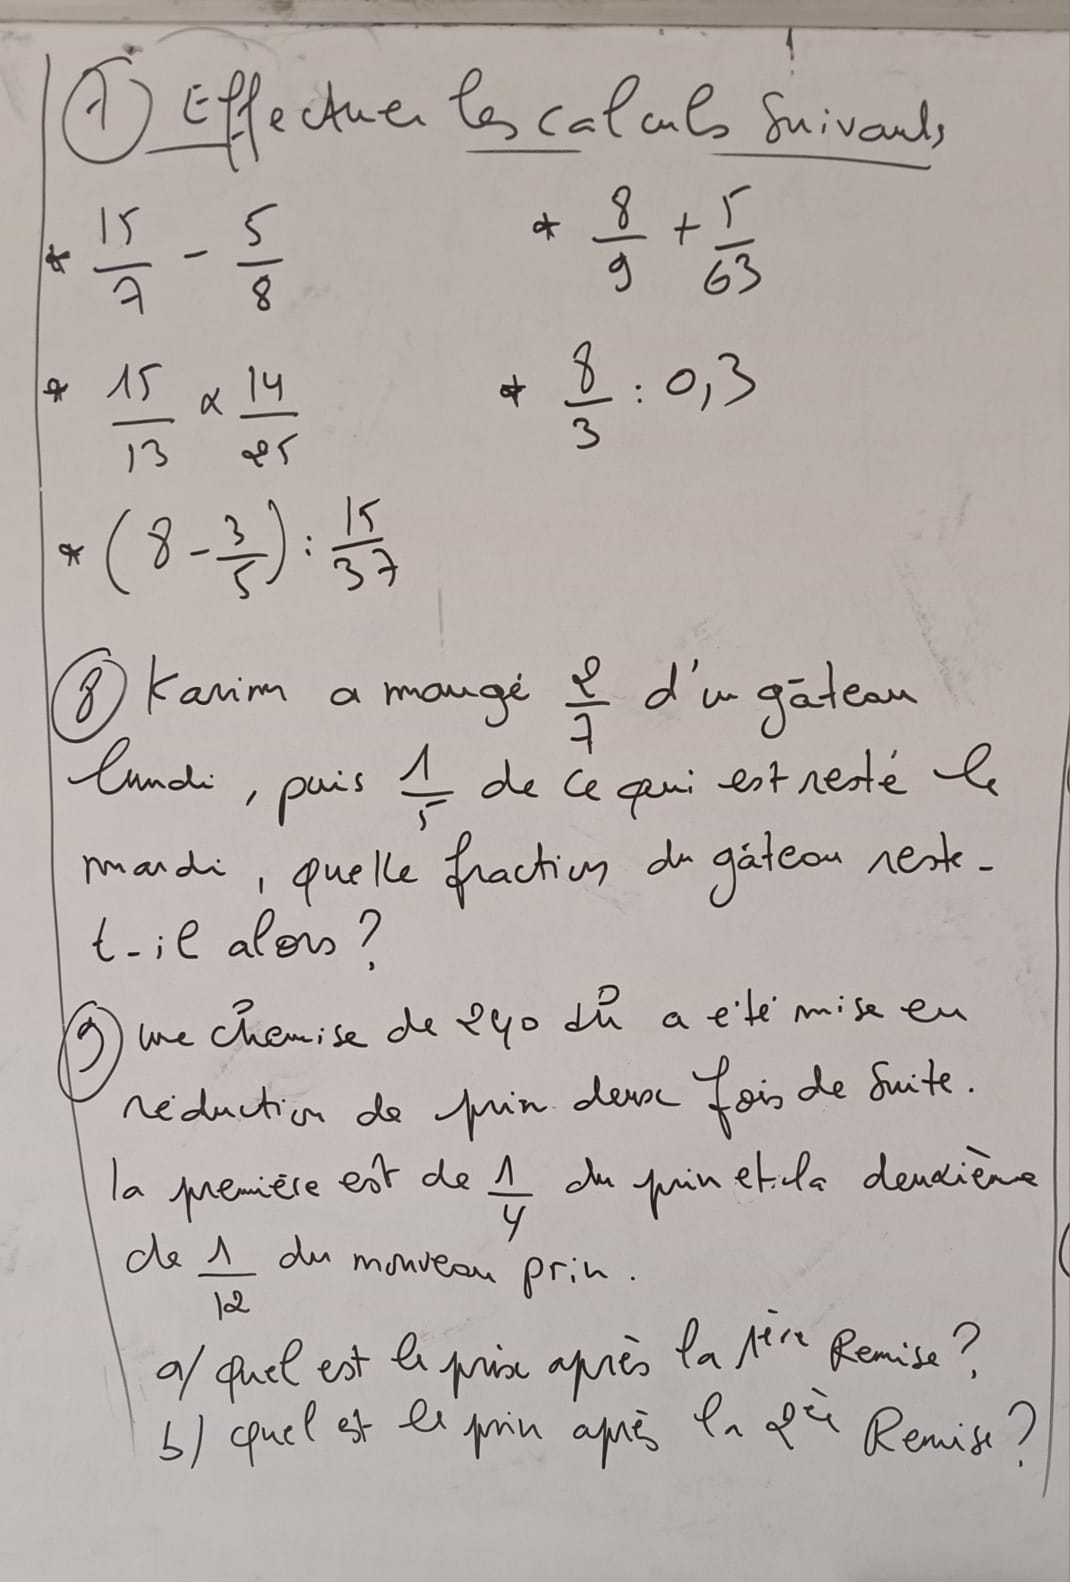 ① Effectuer les calculs suivants
* 15/7 - 5/8
* 8/9 + 5/63
* 15/13 × 14/25
* 8/3 : 0,3
* (8 - 3/5) : 15/37
⑧ Karim a mangé 2/7 d'un gâteau
lundi, puis 1/5 de ce qui est resté le
mardi, quelle fraction du gâteau reste-
t-il alors?
⑨ une chemise de 240 dh a été mise en
réduction de prix deux fois de suite.
la première est de 1/4 du prix et la deuxième
de 1/12 du nouveau prix.
a/ quel est le prix après la 1ère Remise?
b/ quel est le prix après la 2è Remise?